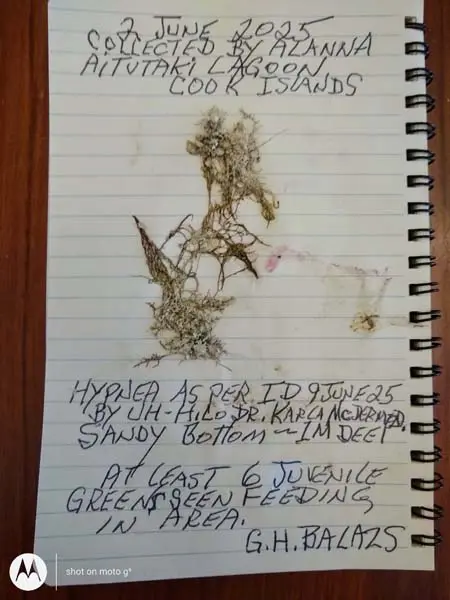 2 JUNE 2025
COLLECTED BY ALANNA
AITUTAKI LAGOON
COOK ISLANDS
HYPNEA AS PER ID 9 JUNE 25
BY UH-HILO DR. KARLA MCDERMID,
SANDY BOTTOM ~ 1M DEEP
AT LEAST 6 JUVENILE
GREENS SEEN FEEDING
IN AREA.
G.H. BALAZS
shot on moto g⁶